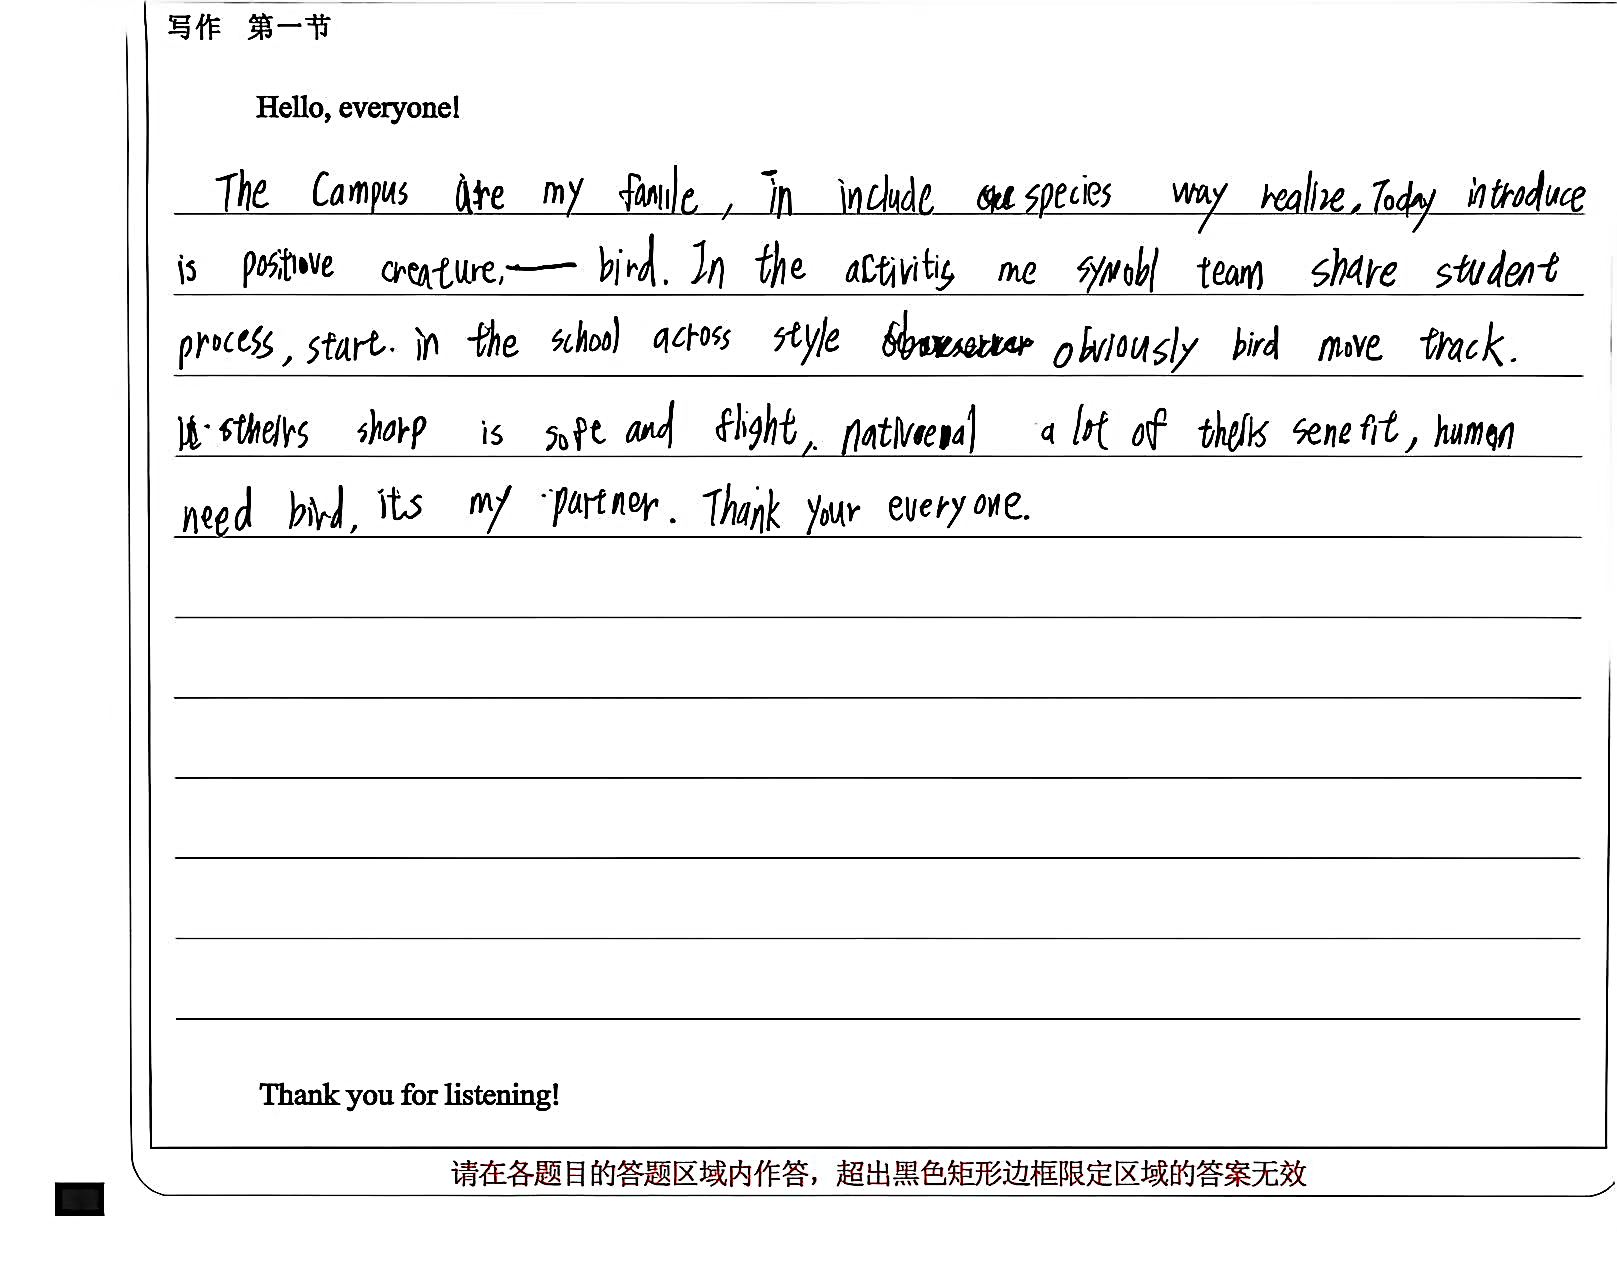 写作 第一节
Hello, everyone!
The Campus are my famile, in include species way realize. Today introduce
is positove creature, — bird. In the activitis me symobl team share student
process, start. in the school across style obviously bird move track.
sthelrs sharp is sofe and flight, a lot of thelrs senefit, human
need bird, its my partner. Thank your everyone.
Thank you for listening!
请在各题目的答题区域内作答，超出黑色矩形边框限定区域的答案无效